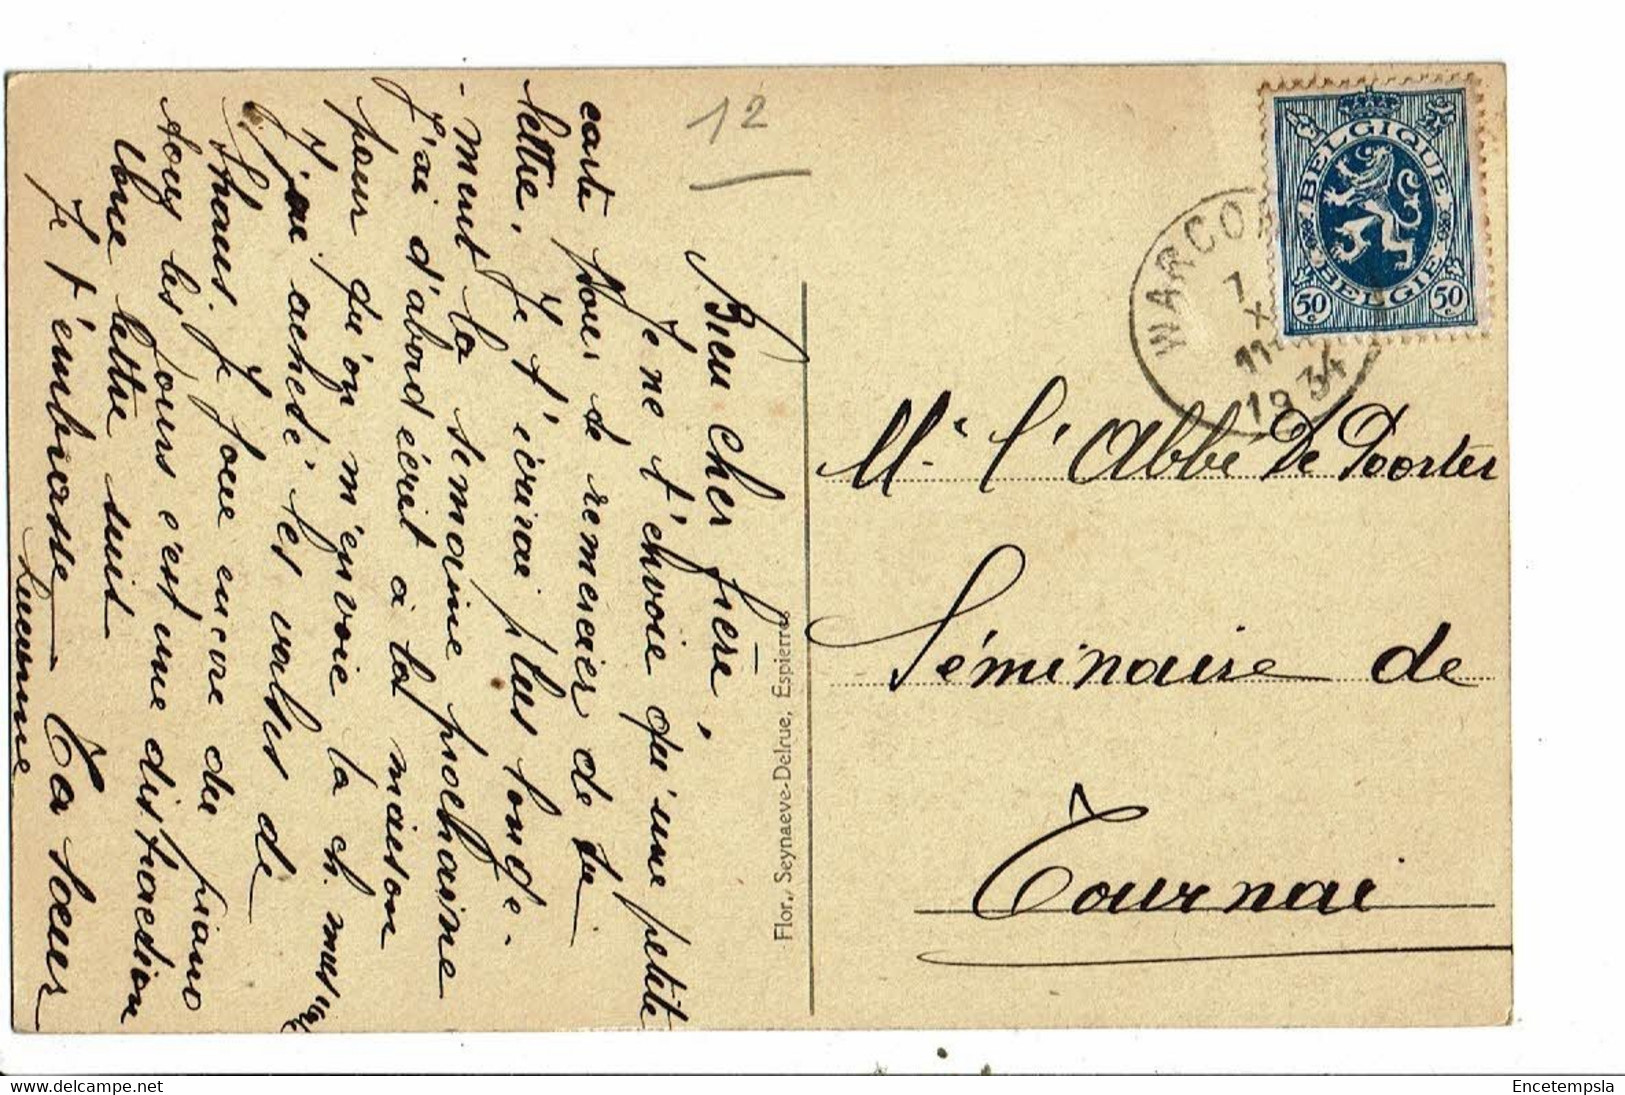 12
Bien cher frère,
Je ne t'envoie qu'une petite
carte pour te remercier de ta
lettre. Je t'écrirai plus longue-
ment la semaine prochaine
J'ai d'abord écrit à la maison
pour qu'on m'envoie la ch. mus
J'ai acheté les valses de
Je joue encore du piano
tous les jours c'est une distraction
Une lettre suit
Je t'embrasse Ta soeur
Lucienne
Flor. Seynaeve-Delrue, Espierres
BELGIQUE
BELGIE
50 c
50 c
WARCO
7
X
11
1934
Mr l'Abbé De Poorter
Séminaire de
Tournai
Encetempsla